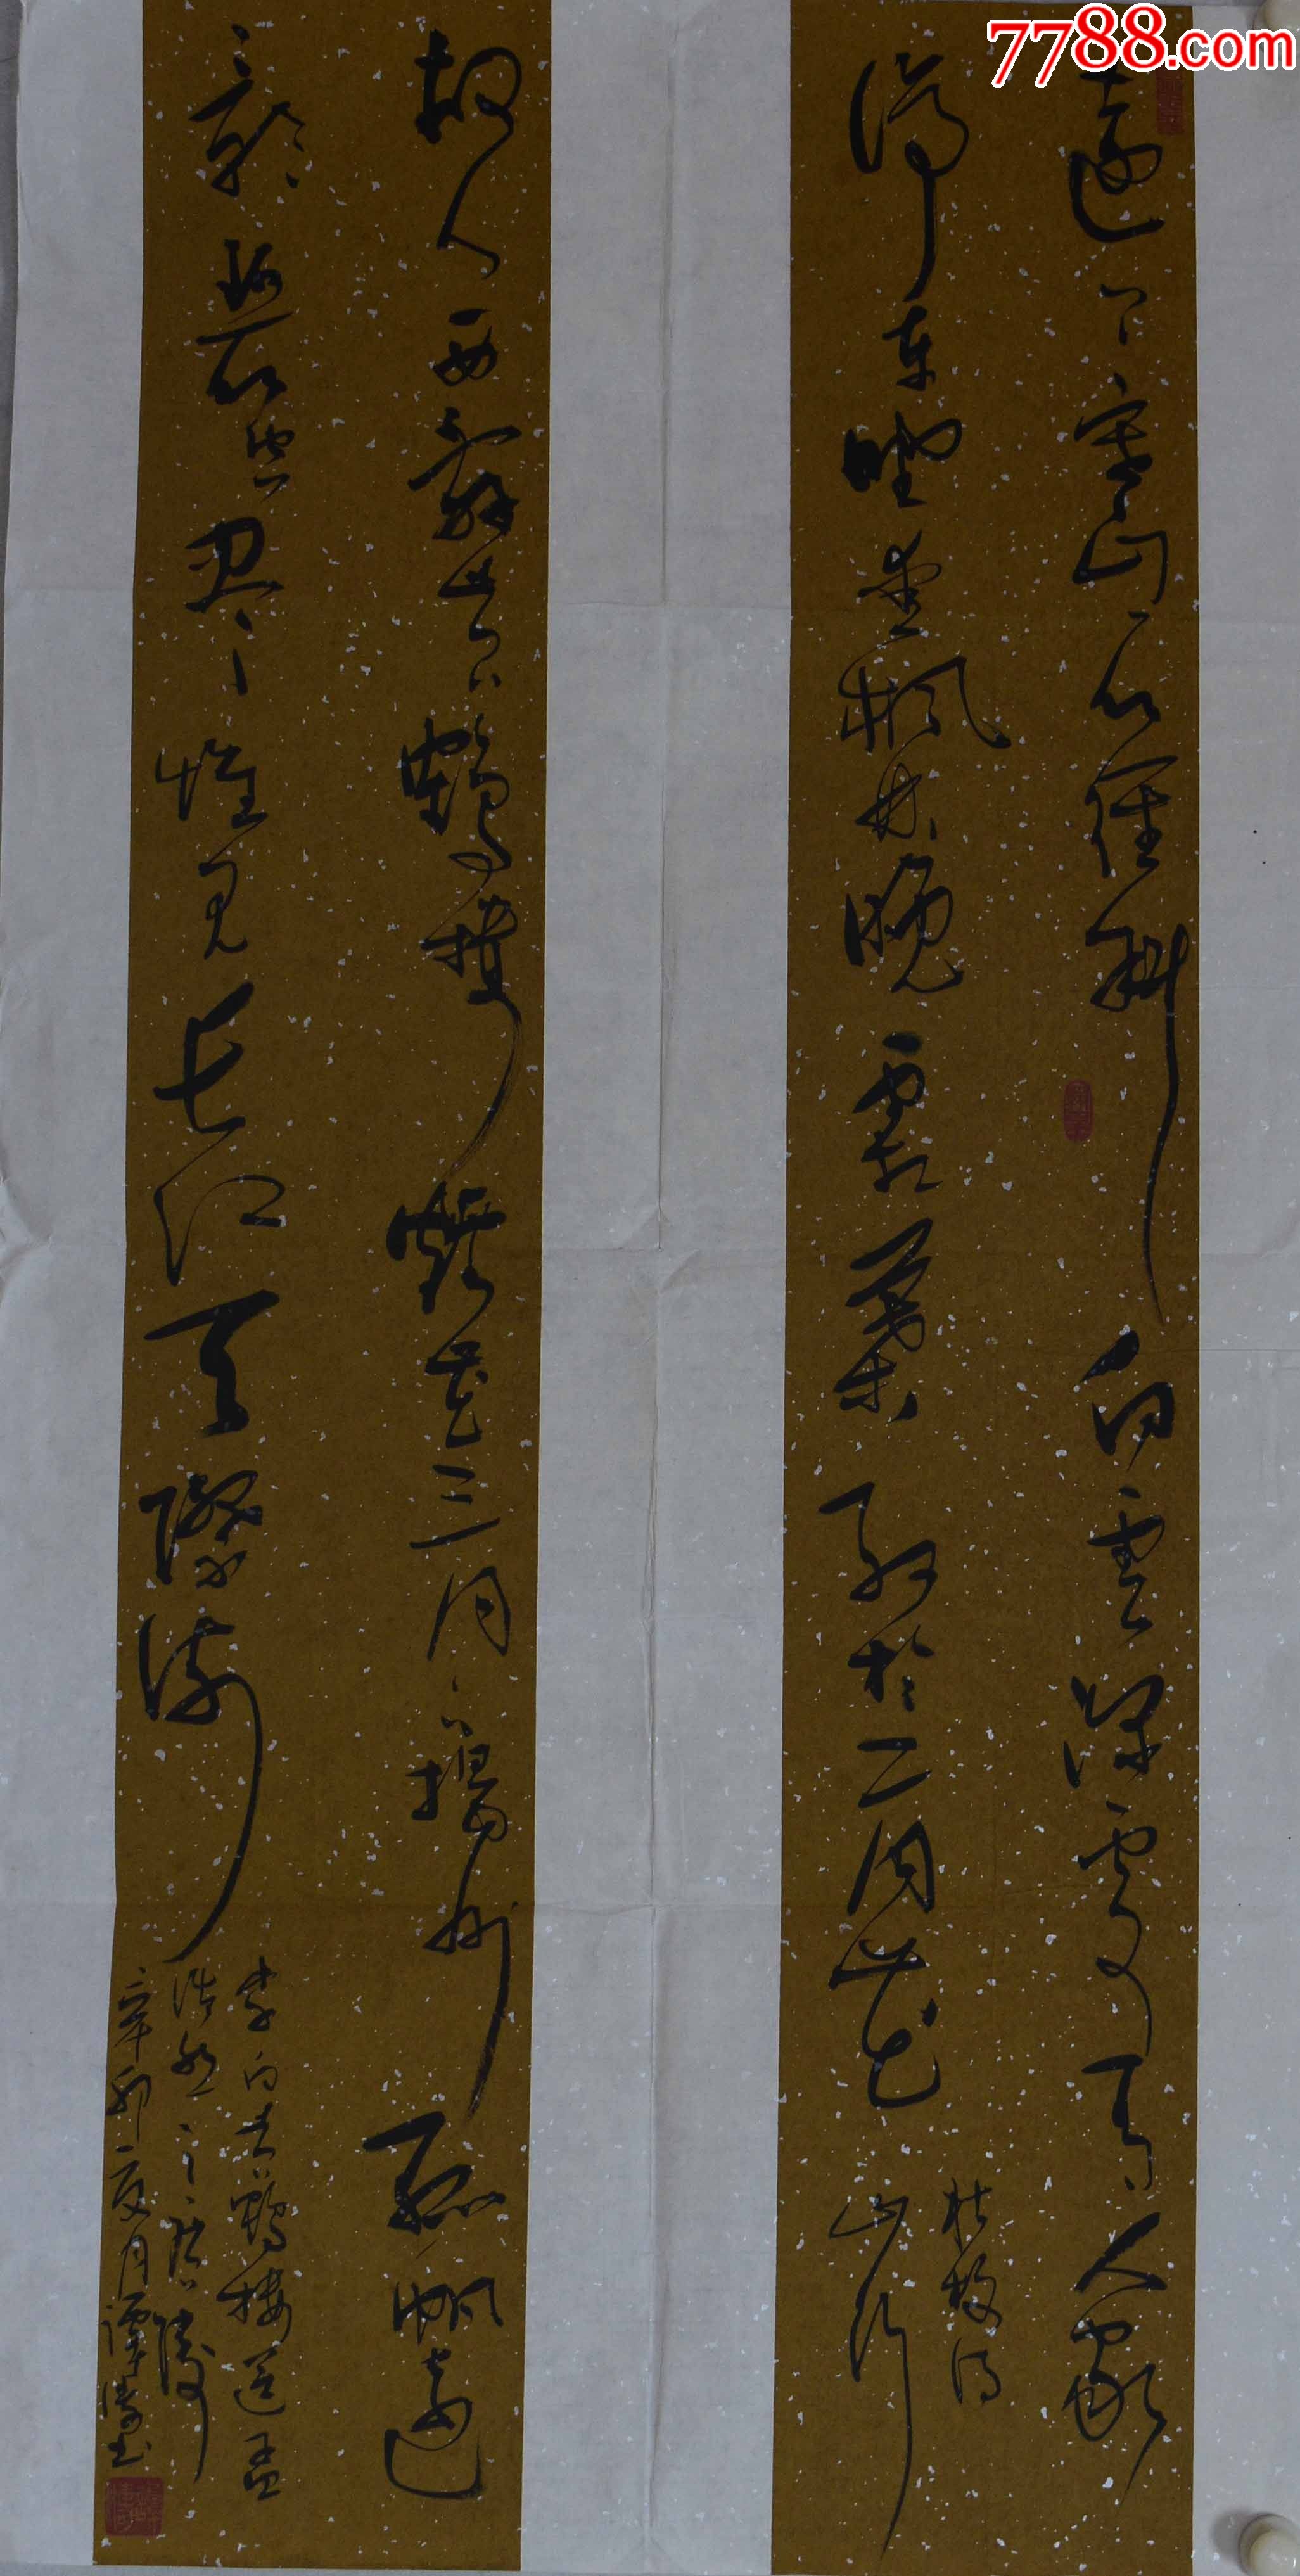 7788.com
遠上寒山石徑斜白雲深處有人家
停車坐愛楓林晚霜葉紅於二月花
杜牧詩
山行
故人西辭黃鶴樓煙花三月下揚州孤帆遠
影碧空盡惟見長江天際流
李白黃鶴樓送孟
浩然之廣陵
辛卯夏月譚
書